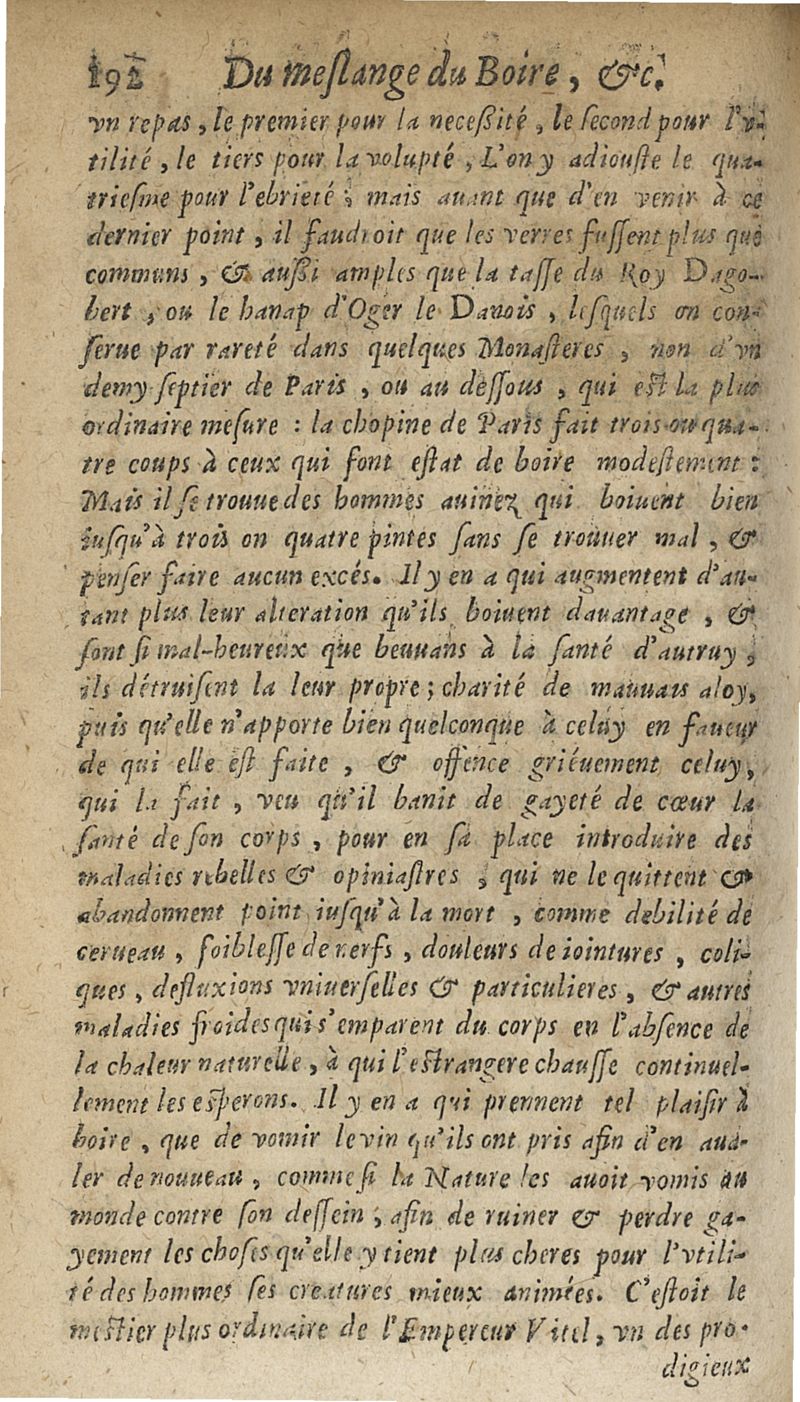 192 Du meſlange du Boire, &c.
vn repas, le premier pour la neceßité, le ſecond pour l'v-
tilité, le tiers pour la volupté, L'on y adiouſte le qua-
trieſme pour l'ebrieté; mais auant que d'en venir à ce
dernier point, il faudroit que les verres fuſſent plus que
communs, & außi amples que la taſſe du Roy Dago-
bert, ou le hanap d'Oger le Danois, leſquels on con-
ſerue par rareté dans quelques Monaſteres, non d'vn
demy ſeptier de Paris, ou au deſſous, qui eſt la plus
ordinaire meſure : la chopine de Paris fait trois ou qua-
tre coups à ceux qui font eſtat de boire modeſtement :
Mais il ſe trouue des hommes auinez qui boiuent bien
iuſqu'à trois on quatre pintes ſans ſe trouuer mal, &
penſer faire aucun excés. Il y en a qui augmentent d'au-
tant plus leur alteration qu'ils boiuent dauantage, &
ſont ſi mal-heureux que beuuans à la ſanté d'autruy,
ils détruiſent la leur propre; charité de mauuais aloy,
puis qu'elle n'apporte bien quelconque à celuy en faueur
de qui elle eſt faite, & offence griéuement celuy,
qui la fait, veu qu'il banit de gayeté de cœur la
ſanté de ſon corps, pour en ſa place introduire des
maladies rebelles & opiniaſtres, qui ne le quittent &
abandonnent point iuſqu'à la mort, comme debilité de
cerueau, foibleſſe de nerfs, douleurs de iointures, coli-
ques, defluxions vniuerſelles & particulieres, & autres
maladies froides qui s'emparent du corps en l'abſence de
la chaleur naturelle, à qui l'eſtrangere chauſſe continuel-
lement les eſperons. Il y en a qui prennent tel plaiſir à
boire, que de vomir le vin qu'ils ont pris afin d'en aua-
ler de nouueau, comme ſi la Nature les auoit vomis au
monde contre ſon deſſein, afin de ruiner & perdre ga-
yement les choſes qu'elle y tient plus cheres pour l'vtili-
té des hommes ſes creatures mieux animées. C'eſtoit le
meſtier plus ordinaire de l'Empereur Vitel, vn des pro-
digieux